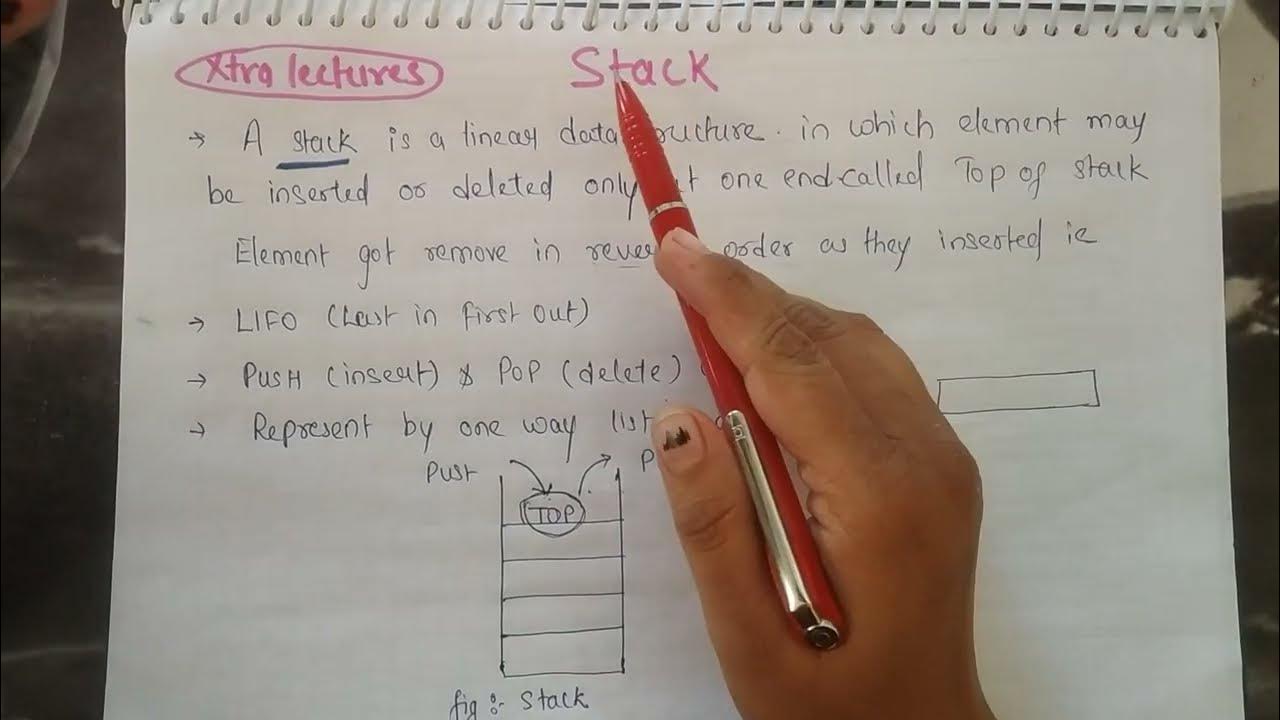 Xtra lectures
Stack
→ A stack is a linear data ructure. in which element may
be inserted or deleted only t one end called Top of stack
Element got remove in rever order as they inserted ie
→ LIFO (Last in first out)
→ PUSH (insert) & POP (delete)
→ Represent by one way list
Push
TOP
fig :- Stack